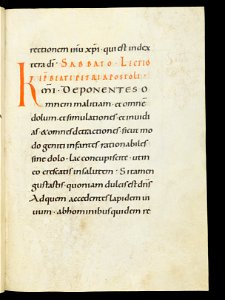 rectionem ihu xpi · qui est in dex
tera di · SABBATO · LECTIO
EPI BEATI PETRI APOSTOLI ·
Kmi · DEPONENTES O
mnem malitiam · et omnē
dolum · et simulationes · et inuidi
as & omnes detractiones · sicut mo
do geniti infantes rationabiles
sine dolo · lac concupiscite · ut in eo
crescatis in salutem · Si tamen
gustastis · quoniam dulcis est dns
Ad quem accedentes lapidem ui
uum · ab hominibus quidem re